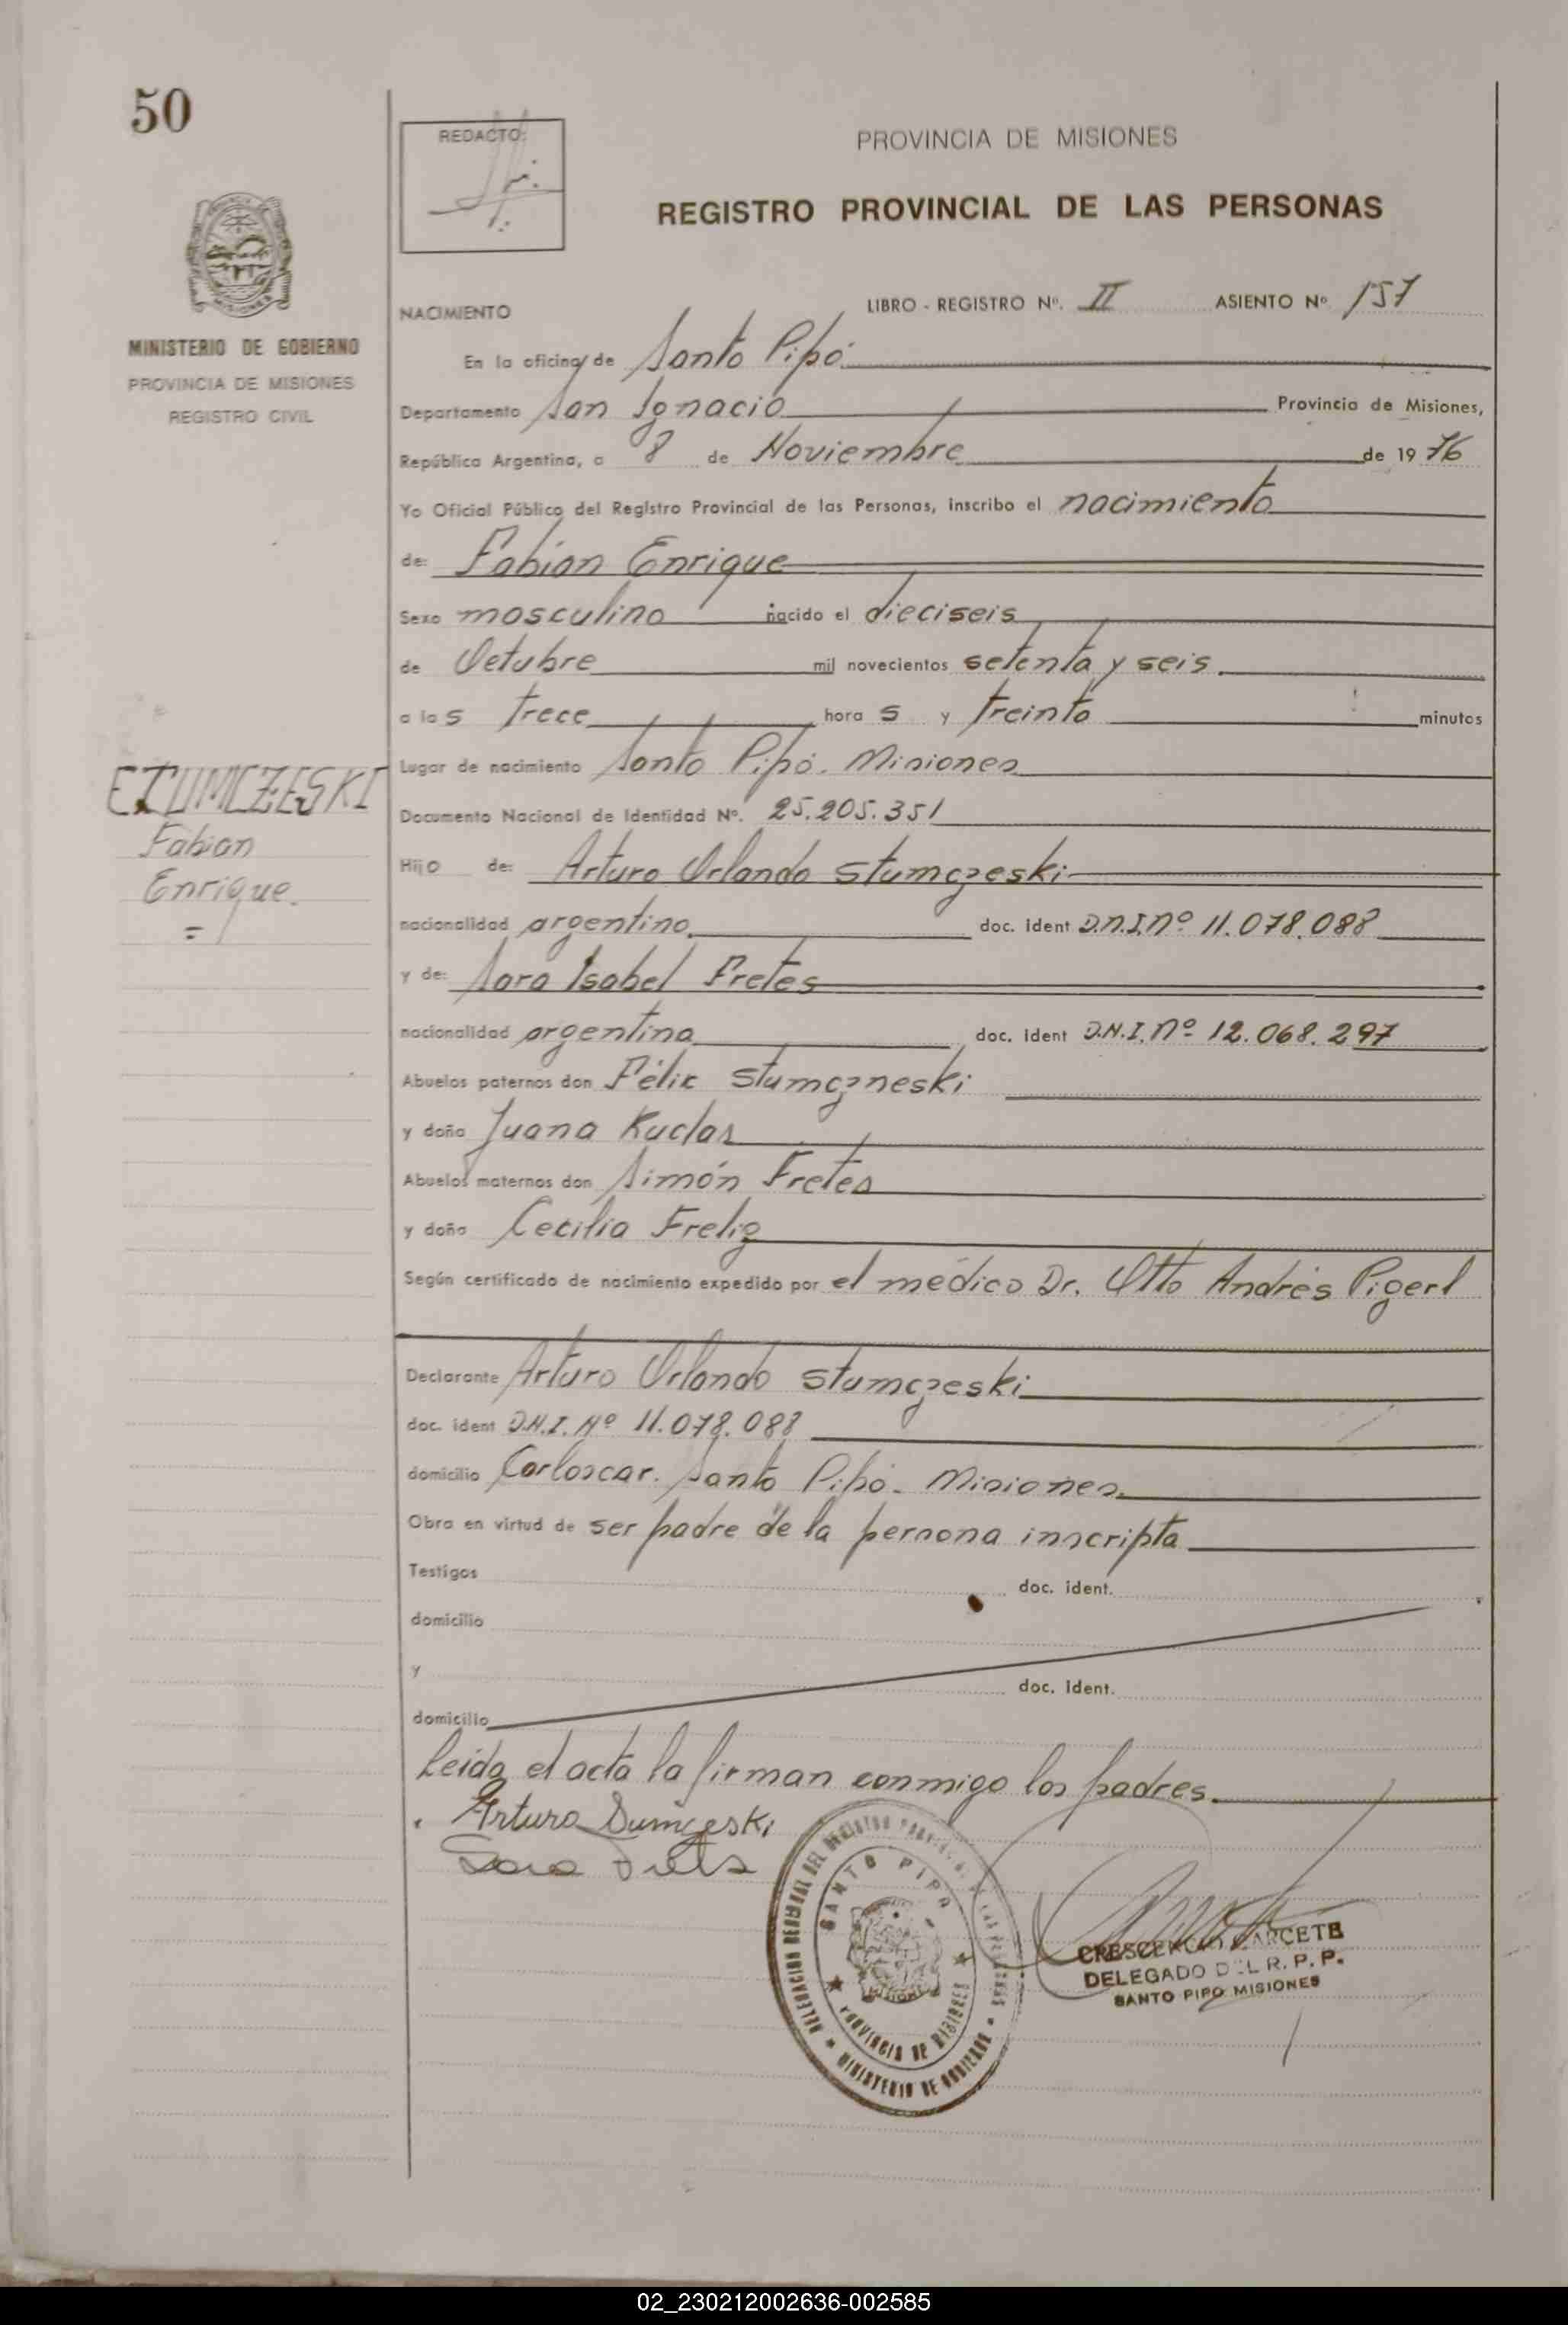 50
REDACTO:
PROVINCIA DE MISIONES
REGISTRO PROVINCIAL DE LAS PERSONAS
MINISTERIO DE GOBIERNO
PROVINCIA DE MISIONES
REGISTRO CIVIL
NACIMIENTO
LIBRO - REGISTRO Nº. II ASIENTO Nº 157
En la oficina de Santo Pipó
Departamento San Ignacio Provincia de Misiones,
República Argentina, a 8 de Noviembre de 1976
Yo Oficial Público del Registro Provincial de las Personas, inscribo el nacimiento
de: Fabian Enrique
Sexo masculino nacido el dieciseis
de Octubre mil novecientos setenta y seis.
a las trece horas y treinta minutos
Lugar de nacimiento Santo Pipó. Misiones
Fabian
Enrique.
Documento Nacional de Identidad Nº. 25.205.351
Hijo de: Arturo Orlando Stumczeski
nacionalidad argentino. doc. ident D.N.I. nº 11.078.088
y de: Sara Isabel Fretes
nacionalidad argentina doc. ident D.N.I. nº 12.068.297
Abuelos paternos don Félix Stumczneski
y doña Juana Kuclas
Abuelos maternos don Simón Fretes
y doña Cecilia Freliz
Según certificado de nacimiento expedido por el médico Dr. Otto Andrés Pigerl
Declarante Arturo Orlando Stumczeski
doc. ident D.N.I. Nº 11.078.088
domicilio Corloscar. Santo Pipó. Misiones.
Obra en virtud de ser padre de la persona inscripta
Testigos doc. ident.
domicilio
y doc. ident.
domicilio
Leida el acta la firman conmigo los padres.
Arturo Sumczeski
Sara Fretes
SANTO PIPO
PROVINCIA DE MISIONES
MINISTERIO DE GOBIERNO
DELEGADO DEL R. P. P.
SANTO PIPO MISIONES
02_230212002636-002585